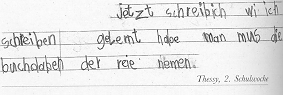 jetzt schreibich wi ich
schreiben gelernt habe man mus die
buchstaben der reie nemen.
Thessy, 2. Schulwoche